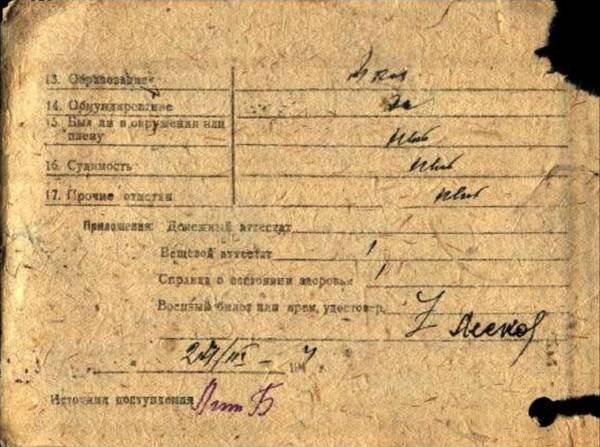 13. Образование
14. Обмундирование да
15. Был ли в окружении или
плену нет
16. Судимость нет
17. Прочие отметки нет
Приложения: Денежный аттестат
Вещевой аттестат 1
Справка о состоянии здоровья 1
Военный билет или врем. удостовер.
194
Источник поступления